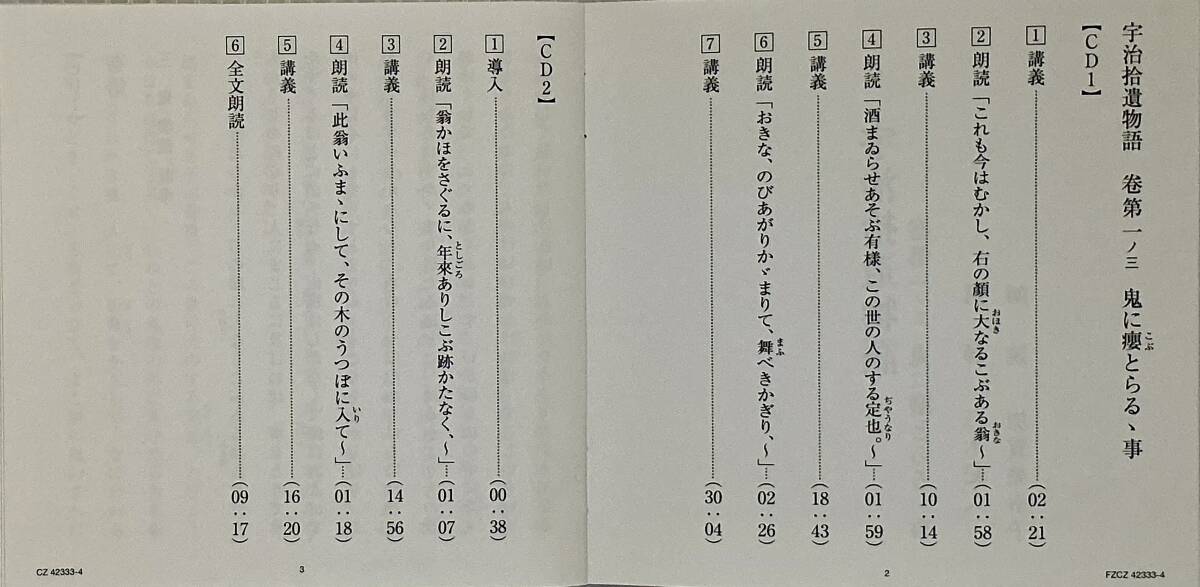 宇治拾遺物語　卷第一ノ三　鬼に瘿とらるゝ事
こぶ
【CD1】
1 講義……(02:21)
2 朗読「これも今はむかし、右の顔に大なるこぶある翁～」…(01:58)
おほき
おきな
3 講義……(10:14)
4 朗読「酒まゐらせあそぶ有様、この世の人のする定也。～」…(01:59)
ぢやうなり
5 講義……(18:43)
6 朗読「おきな、のびあがりかゞまりて、舞べきかぎり、～」…(02:26)
まふ
7 講義……(30:04)
2
FZCZ 42333-4
【CD2】
1 導入……(00:38)
2 朗読「翁かほをさぐるに、年來ありしこぶ跡かたなく、～」…(01:07)
としごろ
3 講義……(14:56)
4 朗読「此翁いふまゝにして、その木のうつぼに入て～」…(01:18)
いり
5 講義……(16:20)
6 全文朗読……(09:17)
3
CZ 42333-4